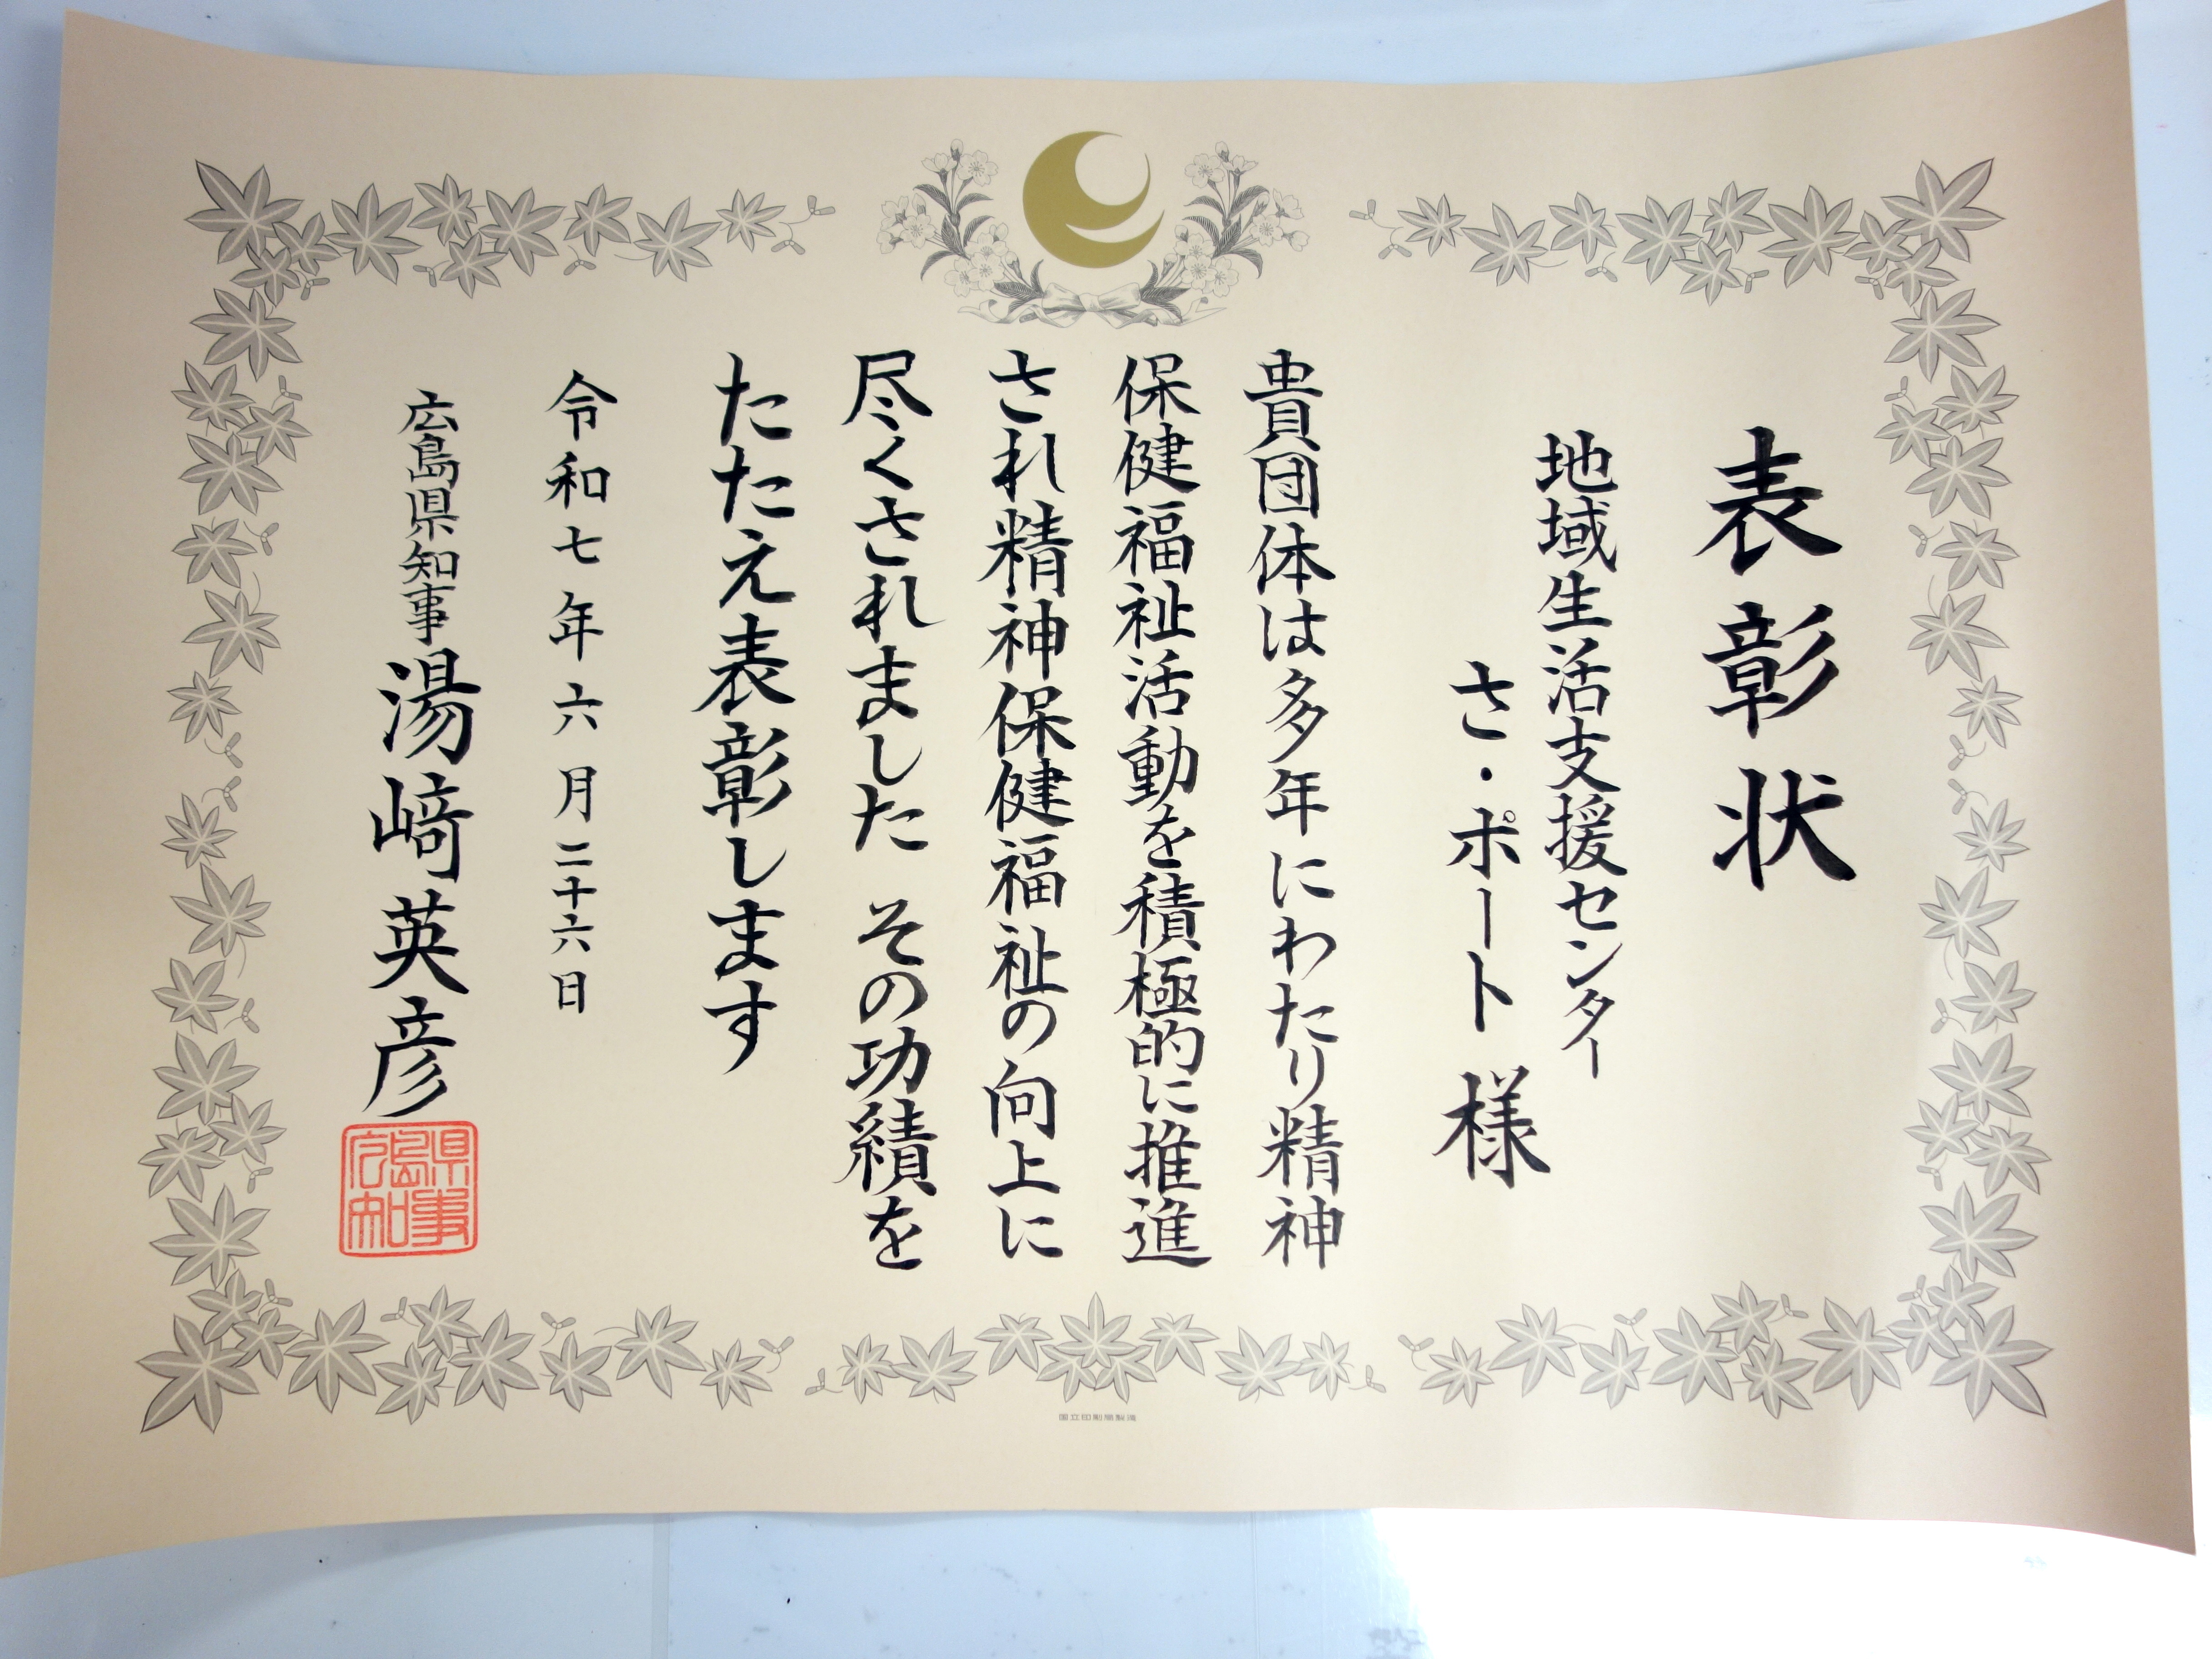 表彰状
地域生活支援センター
さ・ポート 様
貴団体は多年にわたり精神
保健福祉活動を積極的に推進
され精神保健福祉の向上に
尽くされました その功績を
たたえ表彰します
令和七年六月二十六日
広島県知事 湯﨑英彦
広島県知事
国立印刷局製造